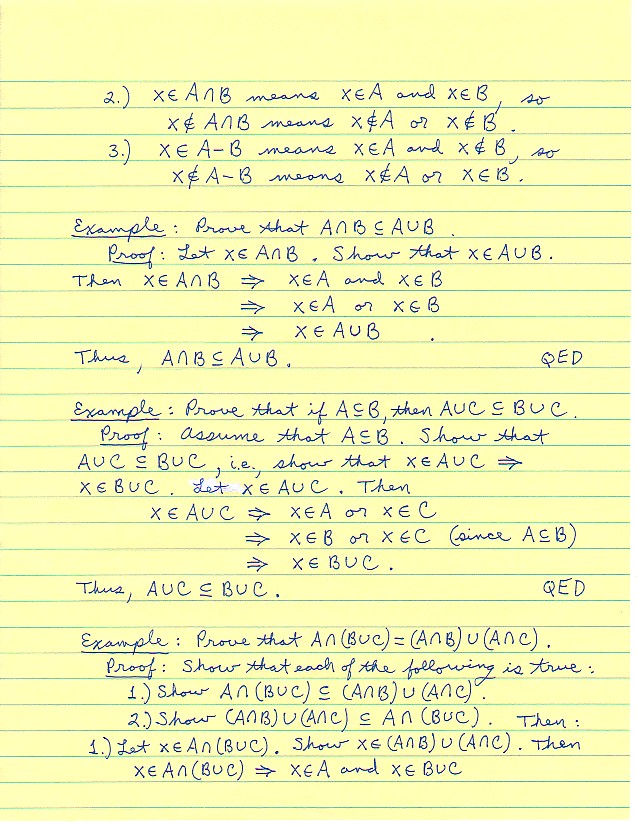 2.) x∈A∩B means x∈A and x∈B, so
x∉A∩B means x∉A or x∉B.
3.) x∈A-B means x∈A and x∉B, so
x∉A-B means x∉A or x∈B.
Example: Prove that A∩B⊆A∪B.
Proof: Let x∈A∩B. Show that x∈A∪B.
Then x∈A∩B ⇒ x∈A and x∈B
⇒ x∈A or x∈B
⇒ x∈A∪B .
Thus, A∩B⊆A∪B. QED
Example: Prove that if A⊆B, then A∪C⊆B∪C.
Proof: Assume that A⊆B. Show that
A∪C⊆B∪C, i.e., show that x∈A∪C ⇒
x∈B∪C. Let x∈A∪C. Then
x∈A∪C ⇒ x∈A or x∈C
⇒ x∈B or x∈C (since A⊆B)
⇒ x∈B∪C.
Thus, A∪C⊆B∪C. QED
Example: Prove that A∩(B∪C)=(A∩B)∪(A∩C).
Proof: Show that each of the following is true:
1.) Show A∩(B∪C)⊆(A∩B)∪(A∩C).
2.) Show (A∩B)∪(A∩C)⊆A∩(B∪C). Then:
1.) Let x∈A∩(B∪C). Show x∈(A∩B)∪(A∩C). Then
x∈A∩(B∪C) ⇒ x∈A and x∈B∪C